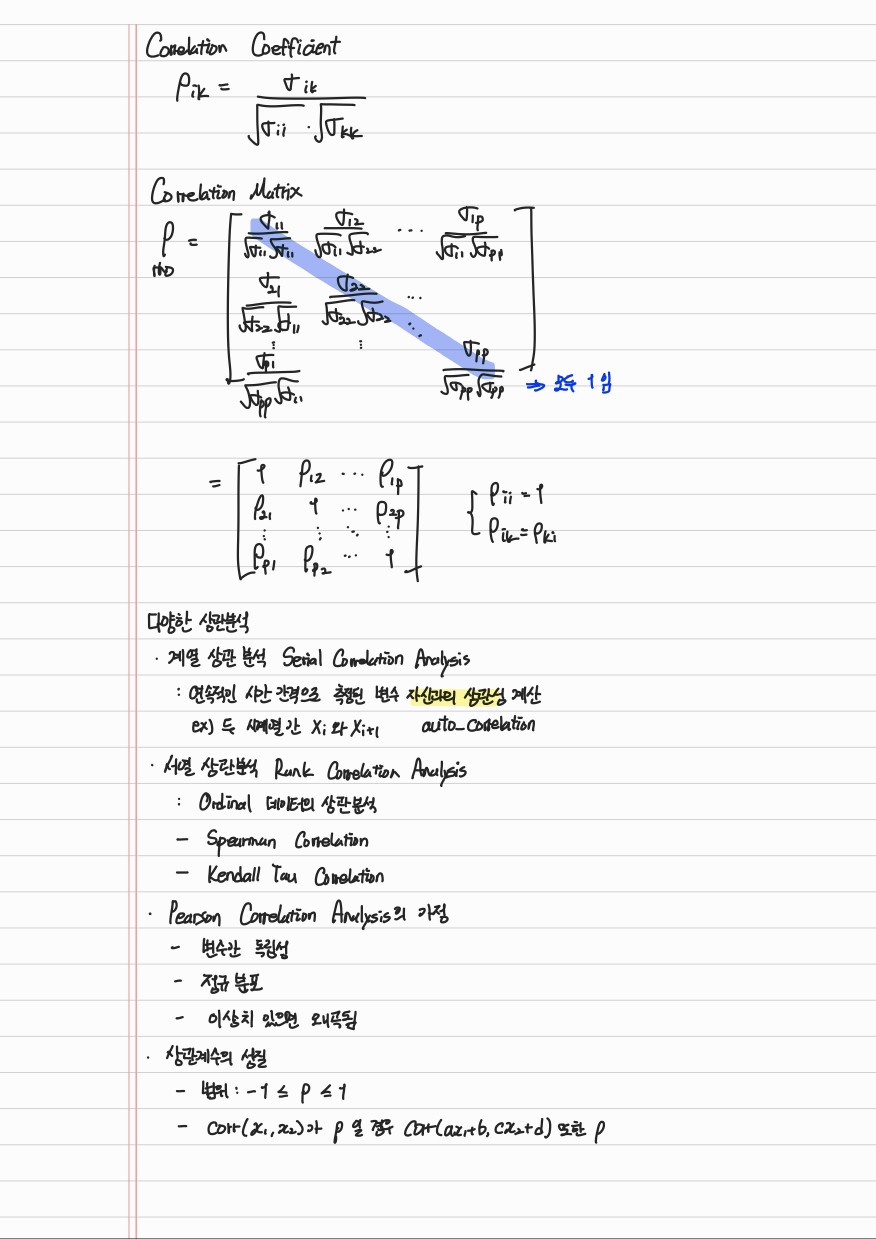 Correlation Coefficient
ρik = σik / √σii · √σkk
Correlation Matrix
ρ = [ σ11/√σ11√σ11 σ12/√σ11√σ22 ⋯ σ1p/√σ11√σpp
rho
σ21/√σ22√σ11 σ22/√σ22√σ22 ⋯
⋮ ⋮ ⋱
σp1/√σpp√σ11 σpp/√σpp√σpp ] ⇒ 모두 1임
= [ 1 ρ12 ⋯ ρ1p
ρ21 1 ⋯ ρ2p
⋮ ⋮ ⋱ ⋮
ρp1 ρp2 ⋯ 1 ]
{ ρii = 1
ρik = ρki
다양한 상관분석
· 계열 상관 분석 Serial Correlation Analysis
: 연속적인 시간 간격으로 측정된 변수 자신과의 상관성 계산
ex) 두 시계열간 Xi 와 Xi+1 auto_correlation
· 서열 상관분석 Rank Correlation Analysis
: Ordinal 데이터의 상관분석
- Spearman Correlation
- Kendall Tau Correlation
· Pearson Correlation Analysis의 가정
- 변수간 독립성
- 정규 분포
- 이상치 있으면 왜곡됨
· 상관계수의 성질
- 범위 : -1 ≤ ρ ≤ 1
- corr(x1, x2)가 ρ 일 경우 corr(ax1+b, cx2+d) 또한 ρ